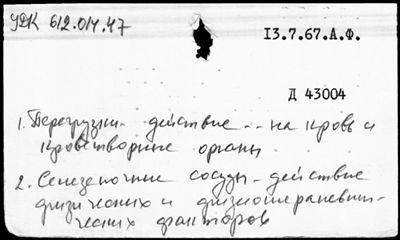 УДК 612.014.47
13.7.67.А.Ф.
Д 43004
1. Перегрузки - действие - - на кровь и
кроветворные органы
2. Селезеночные сосуды - действие
физических и физиотерапевти-
ческих факторов